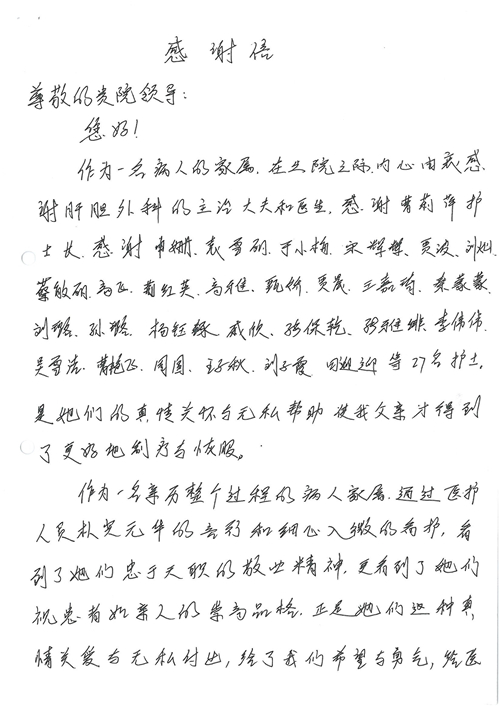 感谢信
尊敬的贵院领导：
您好！
作为一名病人的家属，在出院之际，内心由衷感
谢肝胆外科的主治大夫和医生，感谢曹莉萍护
士长，感谢 珊、袁雪丽、于小梅、宋辉 、贾波、刘灿、
蔡敏丽、高飞、 红英、高雅、甄娇、贾茂、王嘉琦、秦蒙蒙、
刘璐、孙璐、杨钰 、戚欣、张保乾、张雅 、李伟伟、
吴雪洁、曹艳飞、周圆、王子秋、刘子霞、田迎迎等27名护士，
是她们的真情关怀与无私帮助使我父亲才得到
了更好地制疗与恢服。
作为一名亲历整个过程的病人家属，通过医护
人员朴实无华的言行和细心入微的看护，看
到了她们忠于天职的敬业精神，更看到了她们
视患者如亲人的崇高品格，正是她们这种真
情关爱与无私付出，给了我们希望与勇气，给医